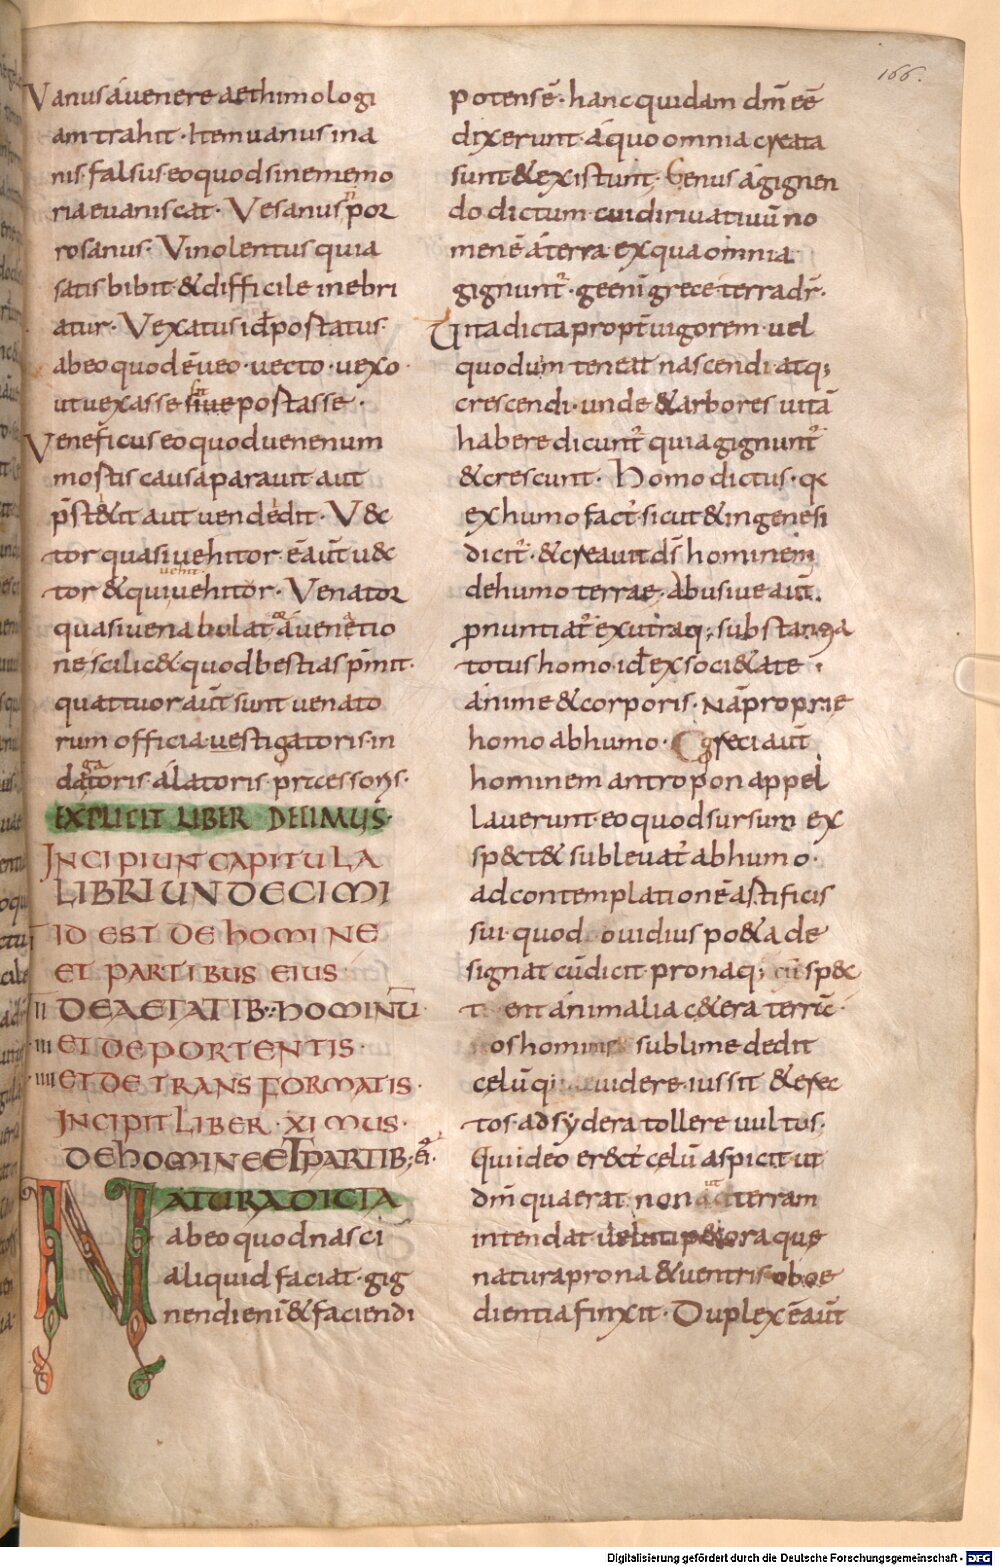 166.
Vanus áuenere aethimologi
am trahit· Item uanus ina
nis· falsus· eo quod sine memo
ria euaniscat· Vesanus ꝑor
rosanus· Vinolentus quia
satis bibit & difficile inebri
atur· Vexatus id portatus·
ab eo quod ē ueo· uecto· uexo·
ut uexasse siue portasse·
Veneficus eo quod uenenum
mostis causa parauit aut
p̄st&it aut uendedit· V&c
tor quasi uehitor ēaut̄ u&c
uehit·
tor & qui uehitor· Venator
quasi uenabulat̄ á uenatio
ne scilic& quod bestias p̄mit·
quattuor aut̄ sunt uenato
rum officia· uestigatoris· in
ga
datoris· alatoris· pressoris·
EXPLICIT LIBER DECIMUS·
INCIPIUNT CAPITULA
LIBRI UNDECIMI
I ID EST DE HOMINE
ET PARTIBUS EIUS
II DE AETATIB: HOMINŪ·
III ET DE PORTENTIS·
IIII ET DE TRANSFORMATIS·
INCIPIT LIBER· XI MUS·
DE HOMINE ET PARTIB; EI·
NATURA DICTA
ab eo quod nasci
aliquid faciat· gig
nendi eni & faciendi
potens ē· hanc quidam dm̄ eē
dixerunt· á quo omnia creata
sunt & existunt· Genus á gignen
do dictum· cui diriuatiuū no
men ē á terra· ex qua omnia
gignunt̄· ge eni grece terra dr̄·
Uita dicta propt̄ uigorem· uel
quod um teneat nascendi· atq;
crescendi· unde & arbores uitā
habere dicunt̄ quia gignunt̄
& crescunt· Homo dictus· qđ
ex humo fact̄· sicut & in genesi
dicit̄· & creauit ds̄ hominem
de humo terrae· Abusiue aut̄.
ꝓnuntiat̄ ex utraq; substantia
totus homo· id ex soci&ate·
anime & corporis· Nā proprie
homo ab humo· Greci aut̄
hominem antropon appel
lauerunt· eo quod sursum ex
sp&ct& subleuat̄ ab humo·
ad contemplationē artificis
sui· quod ouidius po&a de
signat cū dicit· pronaq; cū sp&c
tent animalia c&era terrā·
os homini sublime dedit
celū q; uidere· iussit & erec
tos· ad sydera tollere uultus·
Qui ideo er&ct̄ celū aspicit· ut
ut
dm̄ quaerat· non ad terram
intendat· ueluti pecora que
natura prona & uentris oboe
dientia finxit· Duplex ē aut̄
Digitalisierung gefördert durch die Deutsche Forschungsgemeinschaft - DFG